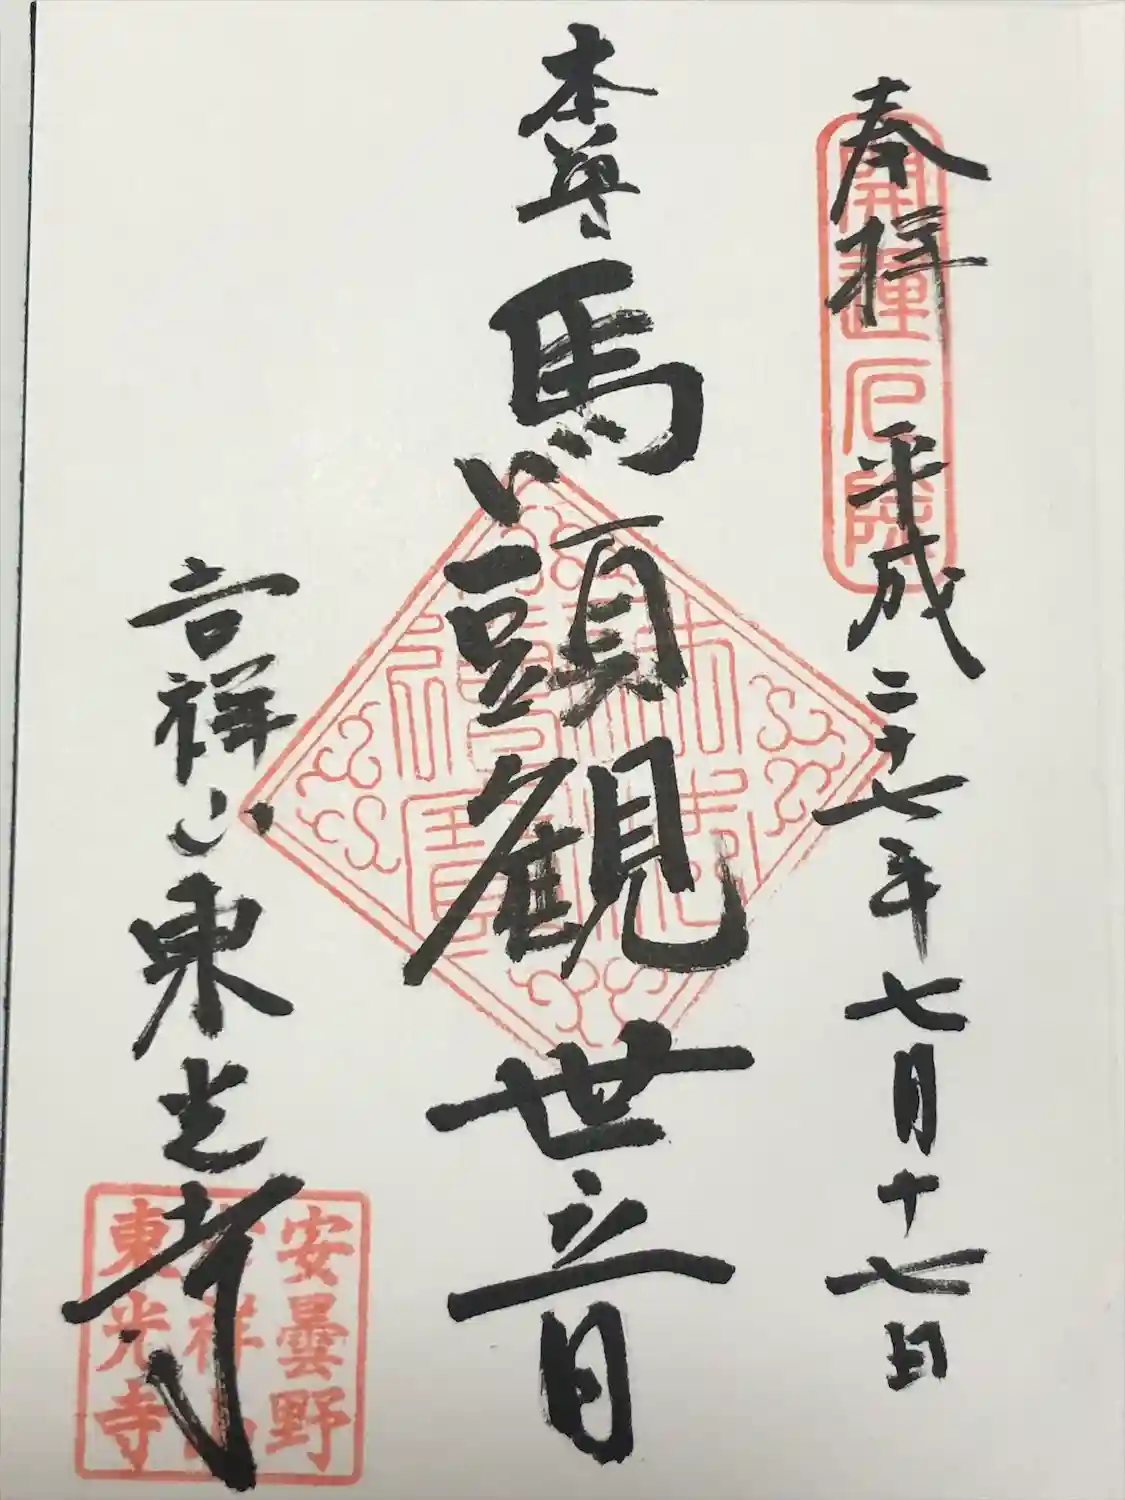 奉拝
平成二十七年七月十七日
開運厄除
本尊馬頭観世音
吉祥山東光寺
安曇野
吉祥山
東光寺